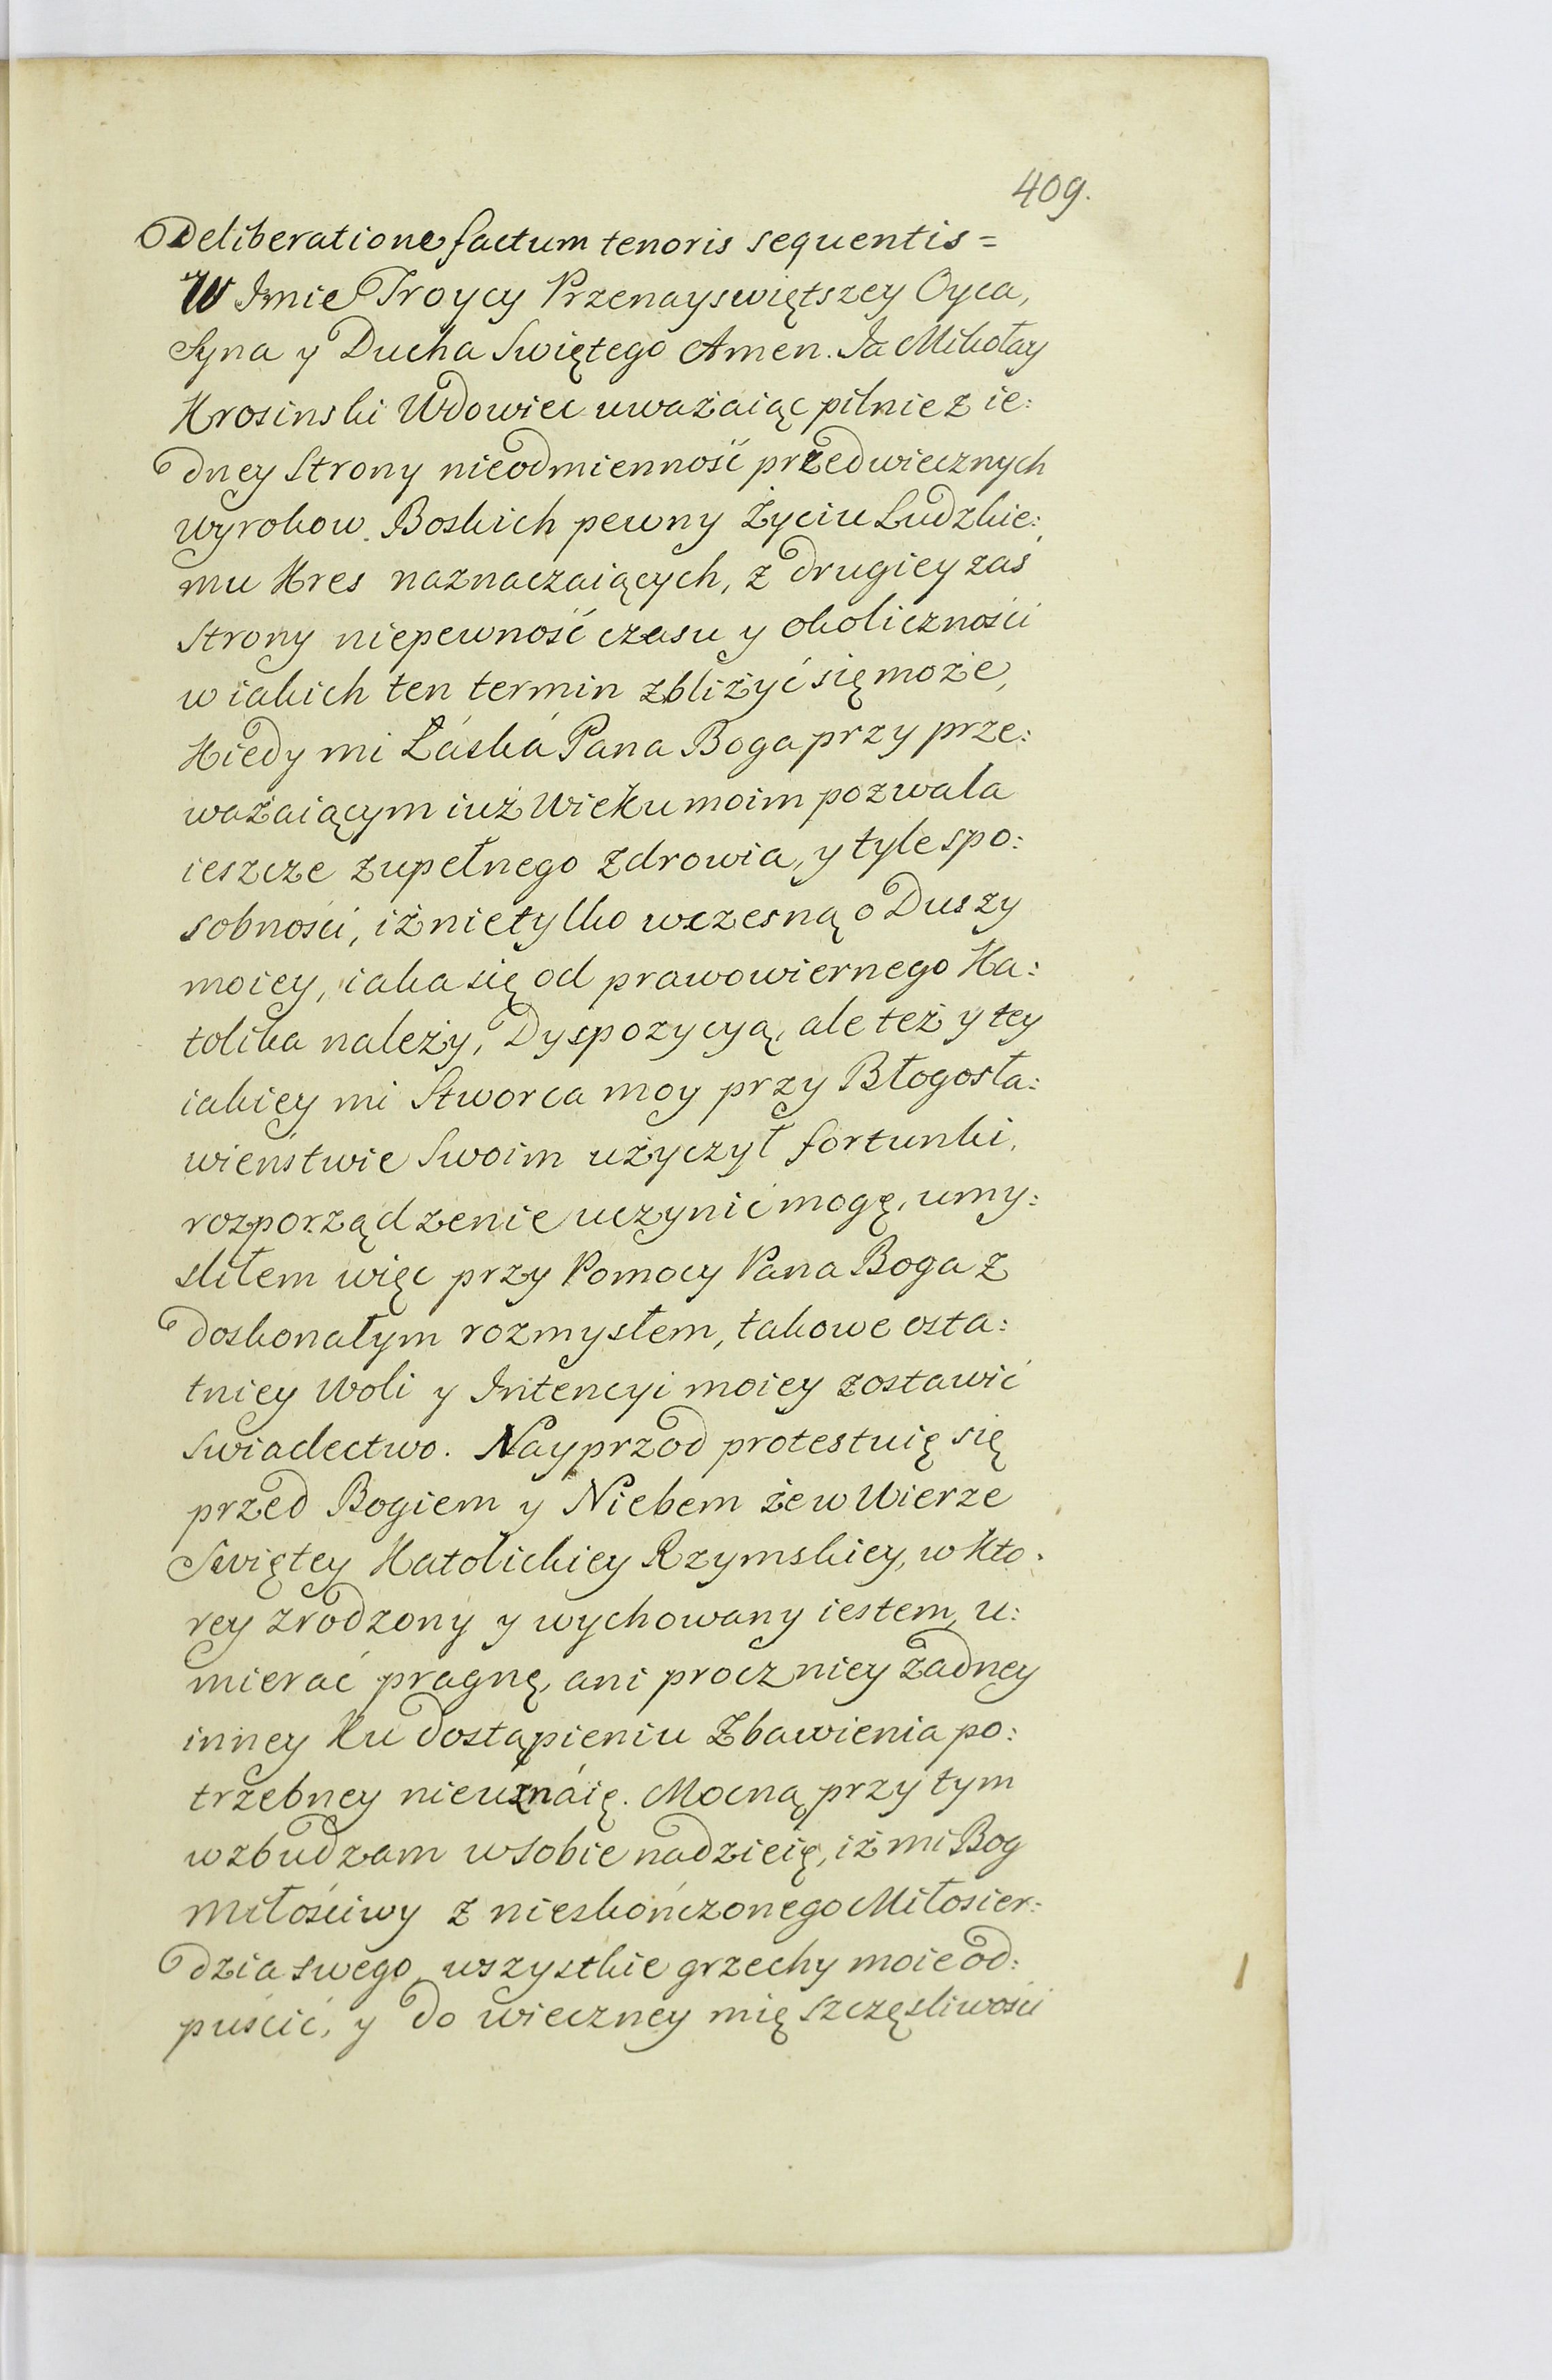 409.
Deliberatione factum tenoris sequentis =
W Jmie Troycy Przenayswiętszey Oyca,
Syna y Ducha Swiętego Amen. Ja Mikołay
Krosinski Wdowiec uważaiąc pilnie z ie:
dney Strony nieodmienność przedwiecznych
wyrokow Boskich pewny Życiu Ludzkie:
mu Kres naznaczaiących, z drugiey zaś
Strony niepewność czasu y okoliczności
w iakich ten termin zbliżyć się może,
Kiedy mi Łáská Pana Boga przy prze:
ważaiącym iuż Wieku moim pozwala
ieszcze zupełnego Zdrowia, y tyle spo:
sobności, iż nietylko wczesną o Duszy
moiey, iaka się od prawowiernego Ka:
tolika należy, Dyspozycyą, ale też y tey
iakiey mi Stworca moy przy Błogosła:
wieństwie Swoim użyczył fortunki,
rozporządzenie uczynić mogę, umy:
sliłem więc przy Pomocy Pana Boga z
doskonałym rozmysłem, takowe osta:
tniey Woli y Jntencyi moiey zostawić
Swiadectwo. Nayprzod protestuię się
przed Bogiem y Niebem że w Wierze
Swiętey Katolickiey Rzymskiey, w kto.
rey zrodzony y wychowany iestem, u:
mierać pragnę, ani procz niey żadney
inney ku dostąpieniu Zbawienia po:
trzebney nieuznáię. Mocną przy tym
wzbudzam w sobie nadzieię, iż mi Bog
Miłościwy z nieskończonego Miłosier:
dzia swego wszystkie grzechy moie od:
puścić, y do wieczney mię szczęśliwości